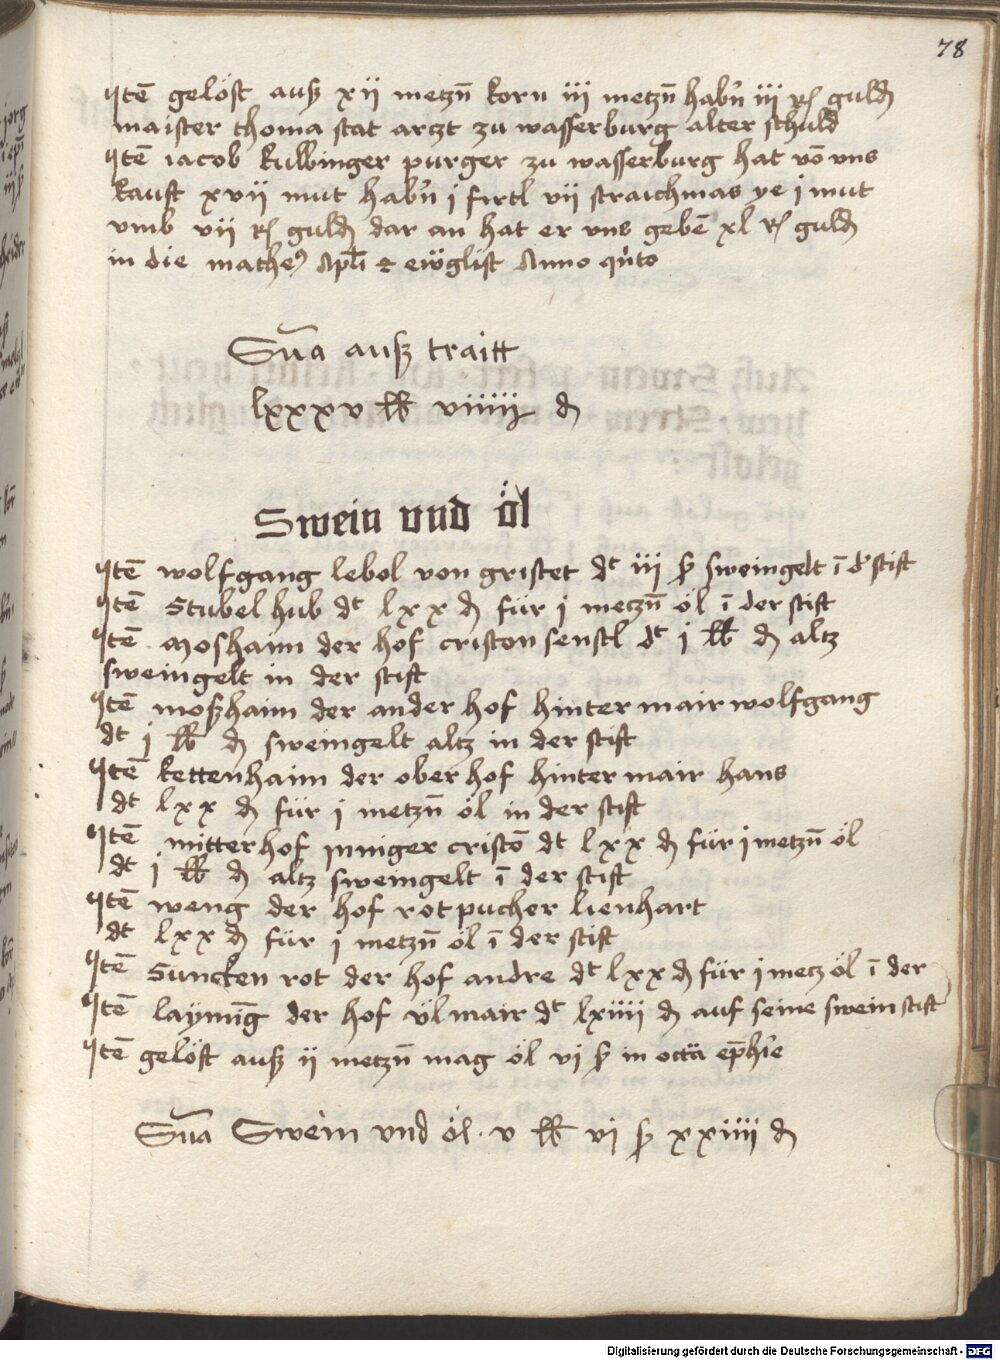 78
Itē gelöst auß xii metzn̄ korn iii metzn̄ habn̄ iii R guld
maister thoma stat artzt zu wasserburg alter schuld
Itē iacob kulbinger purger zu wasserburg hat vō vns
kauft xvii mut habn̄ j firtl vii straichmas ye j mut
vmb vii R guld dar an hat er vns gebē xl R guld
in die mathei apl̄i et ewglist Anno qn̄to
Sūa auß traitt
lxxxv lb viiiij d
Swein vnd öl
Itē wolfgang lebol von gristet dt iii ß sweingelt ī d' stift
Itē Stubelhub dt lxx d für j metzn̄ öl ī der stift
Itē moshaim der hof criston senftl dt j lb d altz
sweingelt in der stift
Itē moßhaim der ander hof hintermair wolfgang
dt j lb d sweingelt altz in der stift
Itē kettenhaim der ober hof hintermair hans
dt lxx d für j metzn̄ öl in der stift
Itē mitterhof inniger cristō dt lxx d für j metzn̄ öl
dt j lb d altz sweingelt ī der stift
Itē weng der hof rotpucher lienhart
dt lxx d für j metzn̄ öl ī der stift
Itē Suncken rot der hof andre dt lxx d für j metz öl ī der
Itē laymīg der hof ülmair dt lxiiii d auf seine swein stift
Itē gelöst auß ii metzn̄ mag öl vi ß in octā ephīe
Sūa Swein vnd öl v lb vi ß xxiiii d
Digitalisierung gefördert durch die Deutsche Forschungsgemeinschaft - DFG